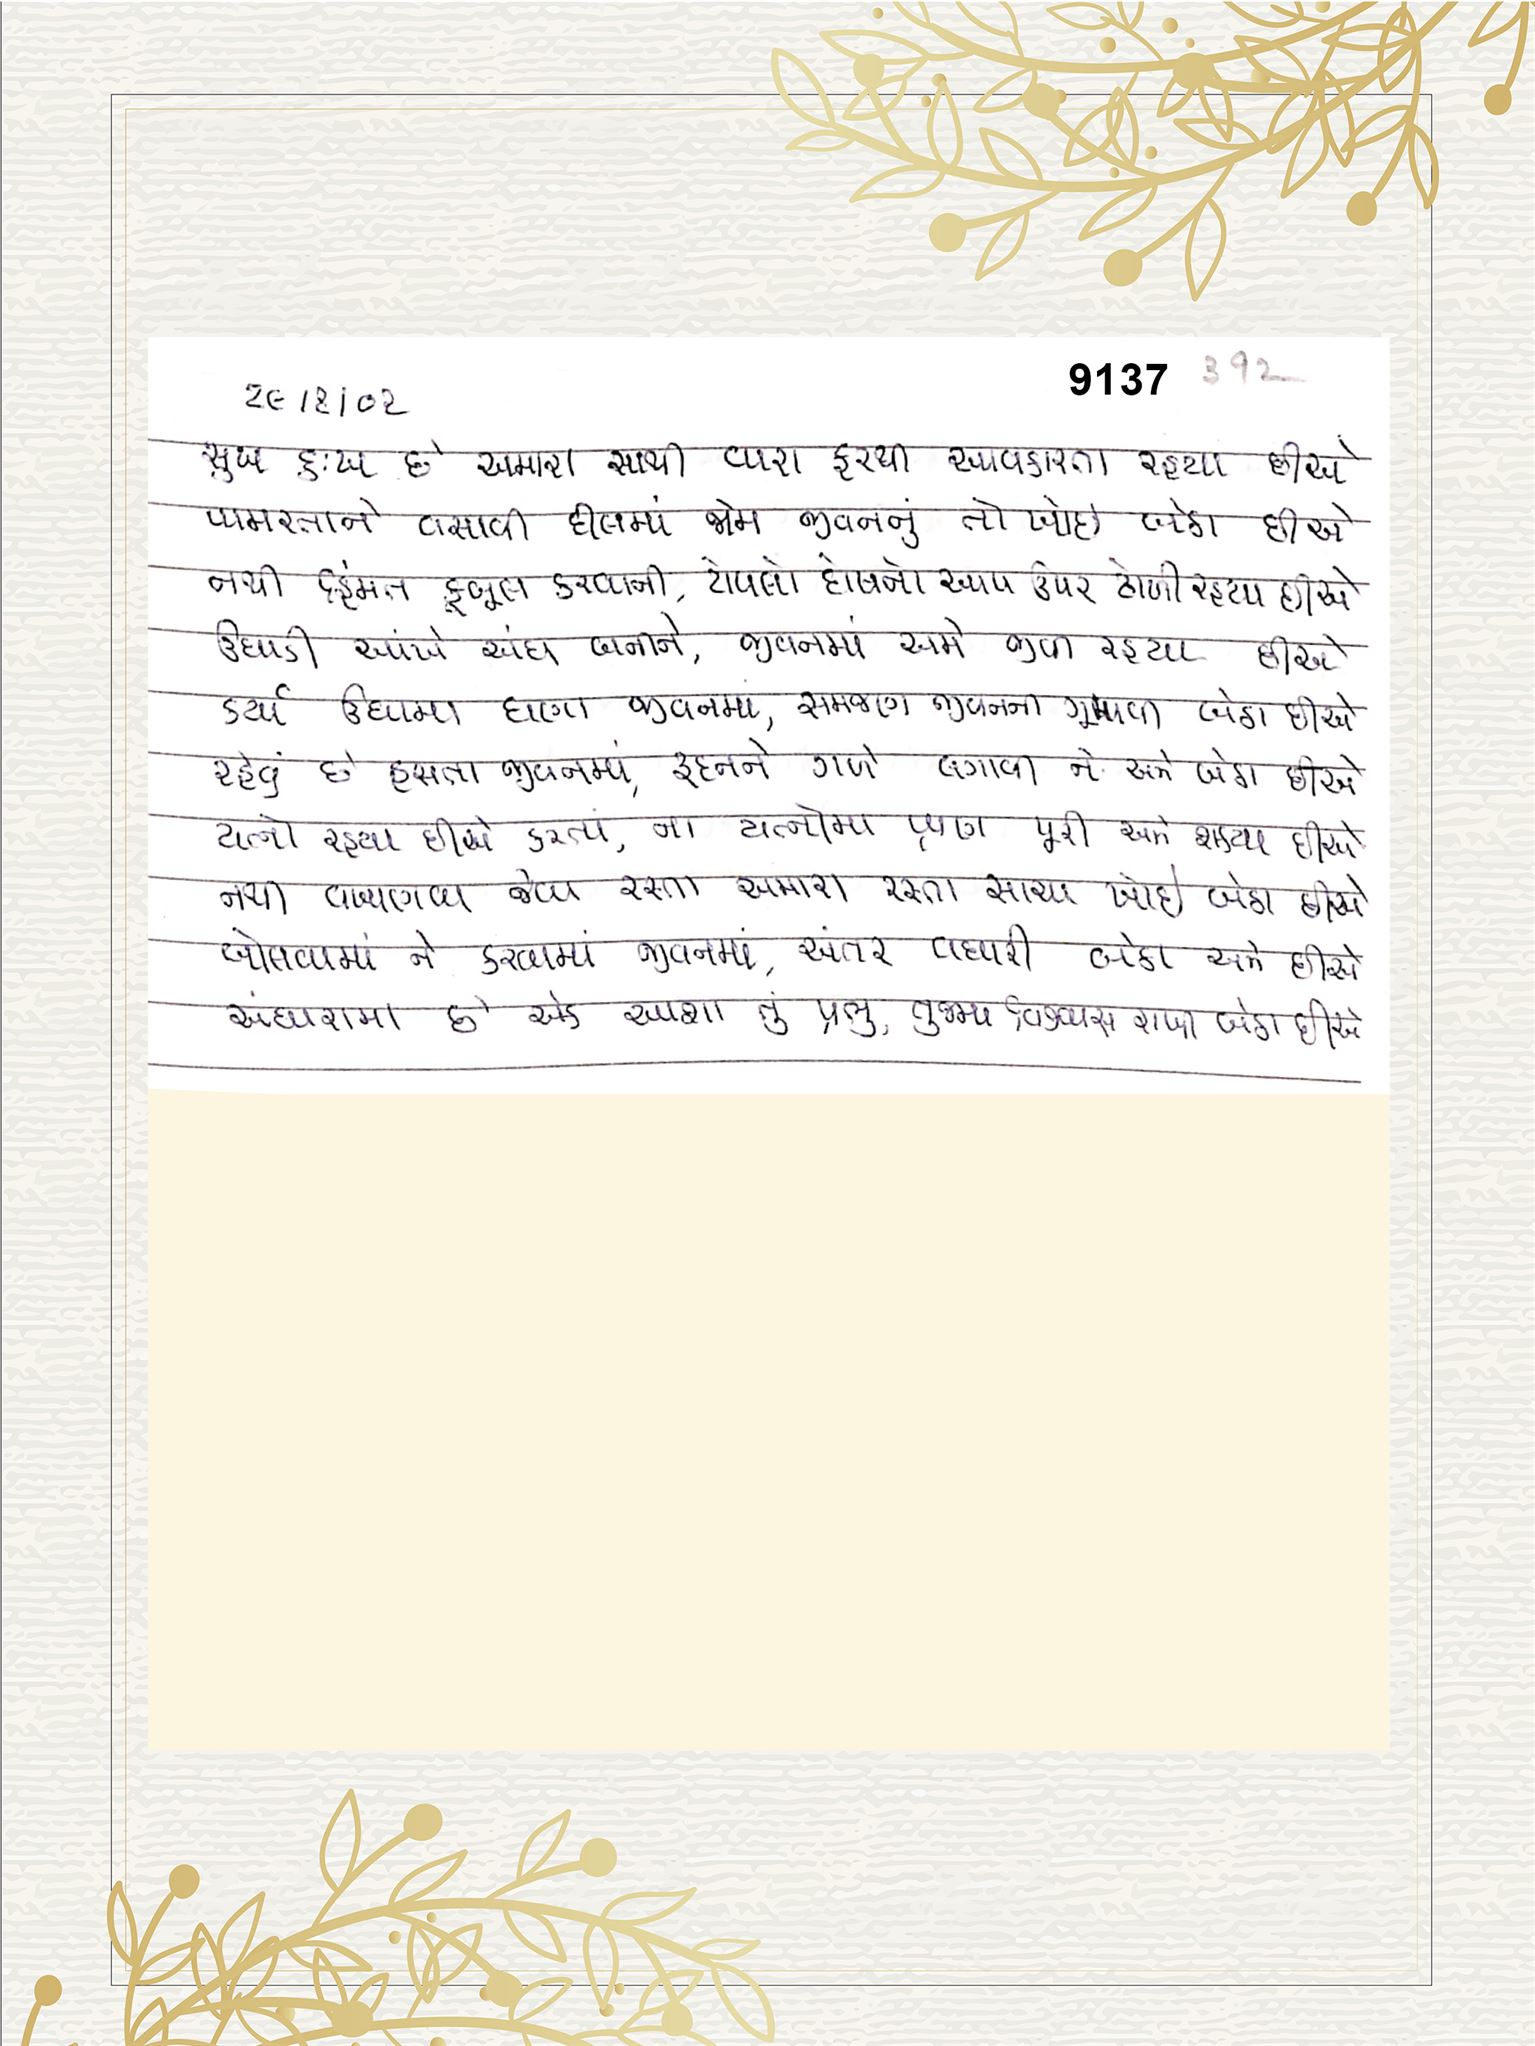 9137 ૩૧૨
૨૯/૨/૦૨
સુખ દુઃખ છે અમારા સાથી વારા ફરથી આવકારતા રહ્યા છીએ
પામરતાને વસાવી દીલમાં જોમ જીવનનું તો ખોઈ બેઠા છીએ
નથી હિંમત કબૂલ કરવાની, ટોપલો દોષનો આપ ઉપર ઢોળી રહ્યા છીએ
ઉઘાડી આંખે અંધ બનીને, જીવનમાં અમે જીવી રહ્યા છીએ
કર્યા ઉધામા ઘણા જીવનમાં, સમજણ જીવનની ગૂમાવી બેઠા છીએ
રહેવું છે હસતા જીવનમાં, રૂદનને ગળે લગાવી ને અમે બેઠા છીએ
યત્નો રહ્યા છીએ કરતાં, ના યત્નોમાં પ્રાણ પૂરી અમે શક્યા છીએ
નથી વખાણવા જેવા રસ્તા અમારા રસ્તા સાચા ખોઈ બેઠા છીએ
બોલવામાં ને કરવામાં જીવનમાં, અંતર વધારી બેઠા અમે છીએ
અંધારામાં છે એક આશા તું પ્રભુ, તુજમા વિશ્વાસ રાખી બેઠા છીએ